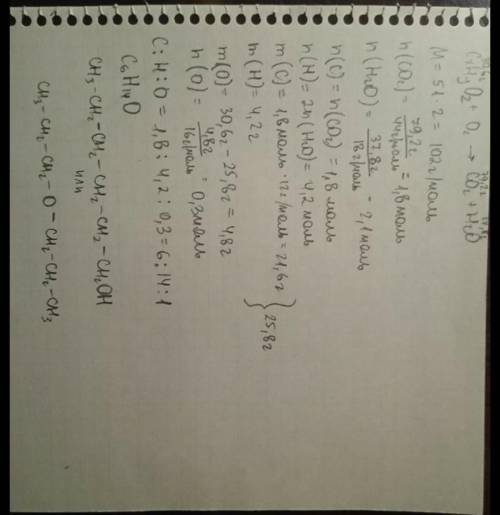 30,6г 79,2г 37,8г
CxHyOz + O2 → CO2 + H2O
M = 51 · 2 = 102 г/моль
n(CO2) = 79,2г / 44г/моль = 1,8 моль
n(H2O) = 37,8г / 18г/моль = 2,1 моль
n(C) = n(CO2) = 1,8 моль
n(H) = 2n(H2O) = 4,2 моль
m(C) = 1,8 моль · 12 г/моль = 21,6г
m(H) = 4,2г } 25,8г
m(O) = 30,6г - 25,8г = 4,8г
n(O) = 4,8г / 16г/моль = 0,3 моль
C : H : O = 1,8 : 4,2 : 0,3 = 6 : 14 : 1
C6H14O
CH3-CH2-CH2-CH2-CH2-CH2OH
или
CH3-CH2-CH2-O-CH2-CH2-CH3